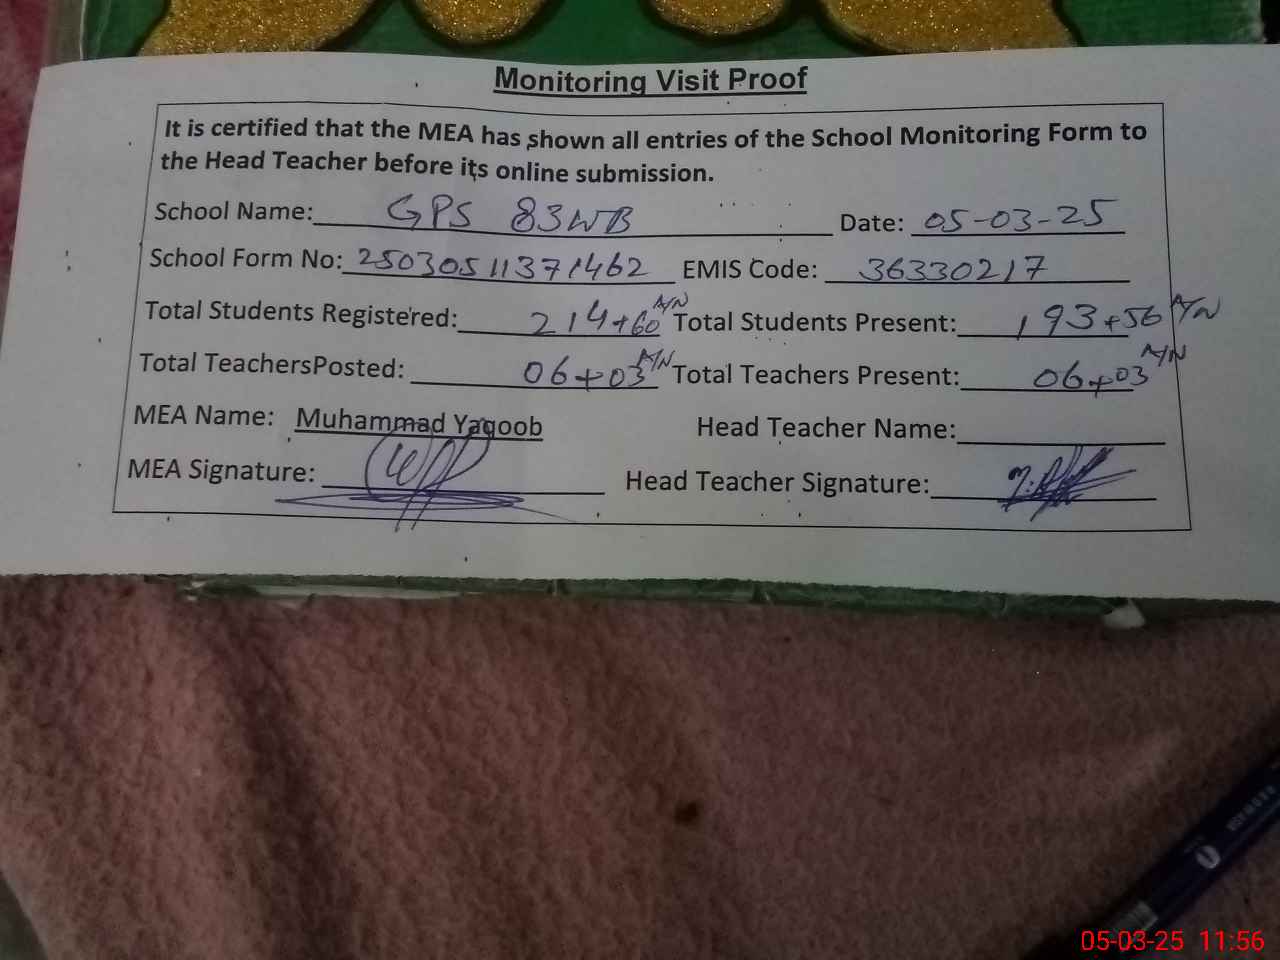 Monitoring Visit Proof
It is certified that the MEA has shown all entries of the School Monitoring Form to
the Head Teacher before its online submission.
School Name: GPS 83WB Date: 05-03-25
School Form No: 25030511371462 EMIS Code: 36330217
Total Students Registered: 214+60 A/N Total Students Present: 193+56 A/N
Total TeachersPosted: 06+03 A/N Total Teachers Present: 06+03 A/N
MEA Name: Muhammad Yaqoob Head Teacher Name:
MEA Signature: Head Teacher Signature:
05-03-25 11:56